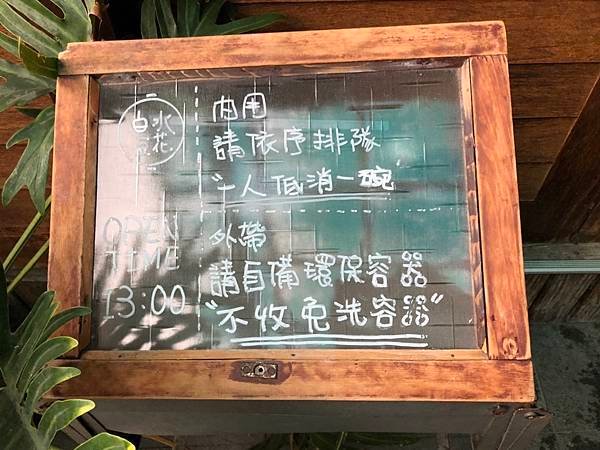 白水
豆花
OPEN
TIME
13:00
内用
請依序排隊
"一人低消一碗"
外帶
請自備環保容器
"不收免洗容器"